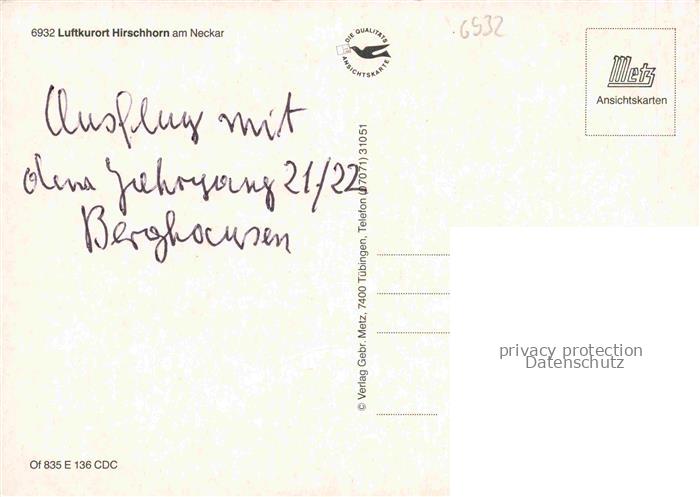 6932 Luftkurort Hirschhorn am Neckar
DIE QUALITÄTS
ANSICHTSKARTE
6932
Metz
Ansichtskarten
Ausflug mit
dem Jahrgang 21/22
Berghausen
© Verlag Gebr. Metz, 7400 Tübingen, Telefon (07071) 31051
privacy protection
Datenschutz
Of 835 E 136 CDC